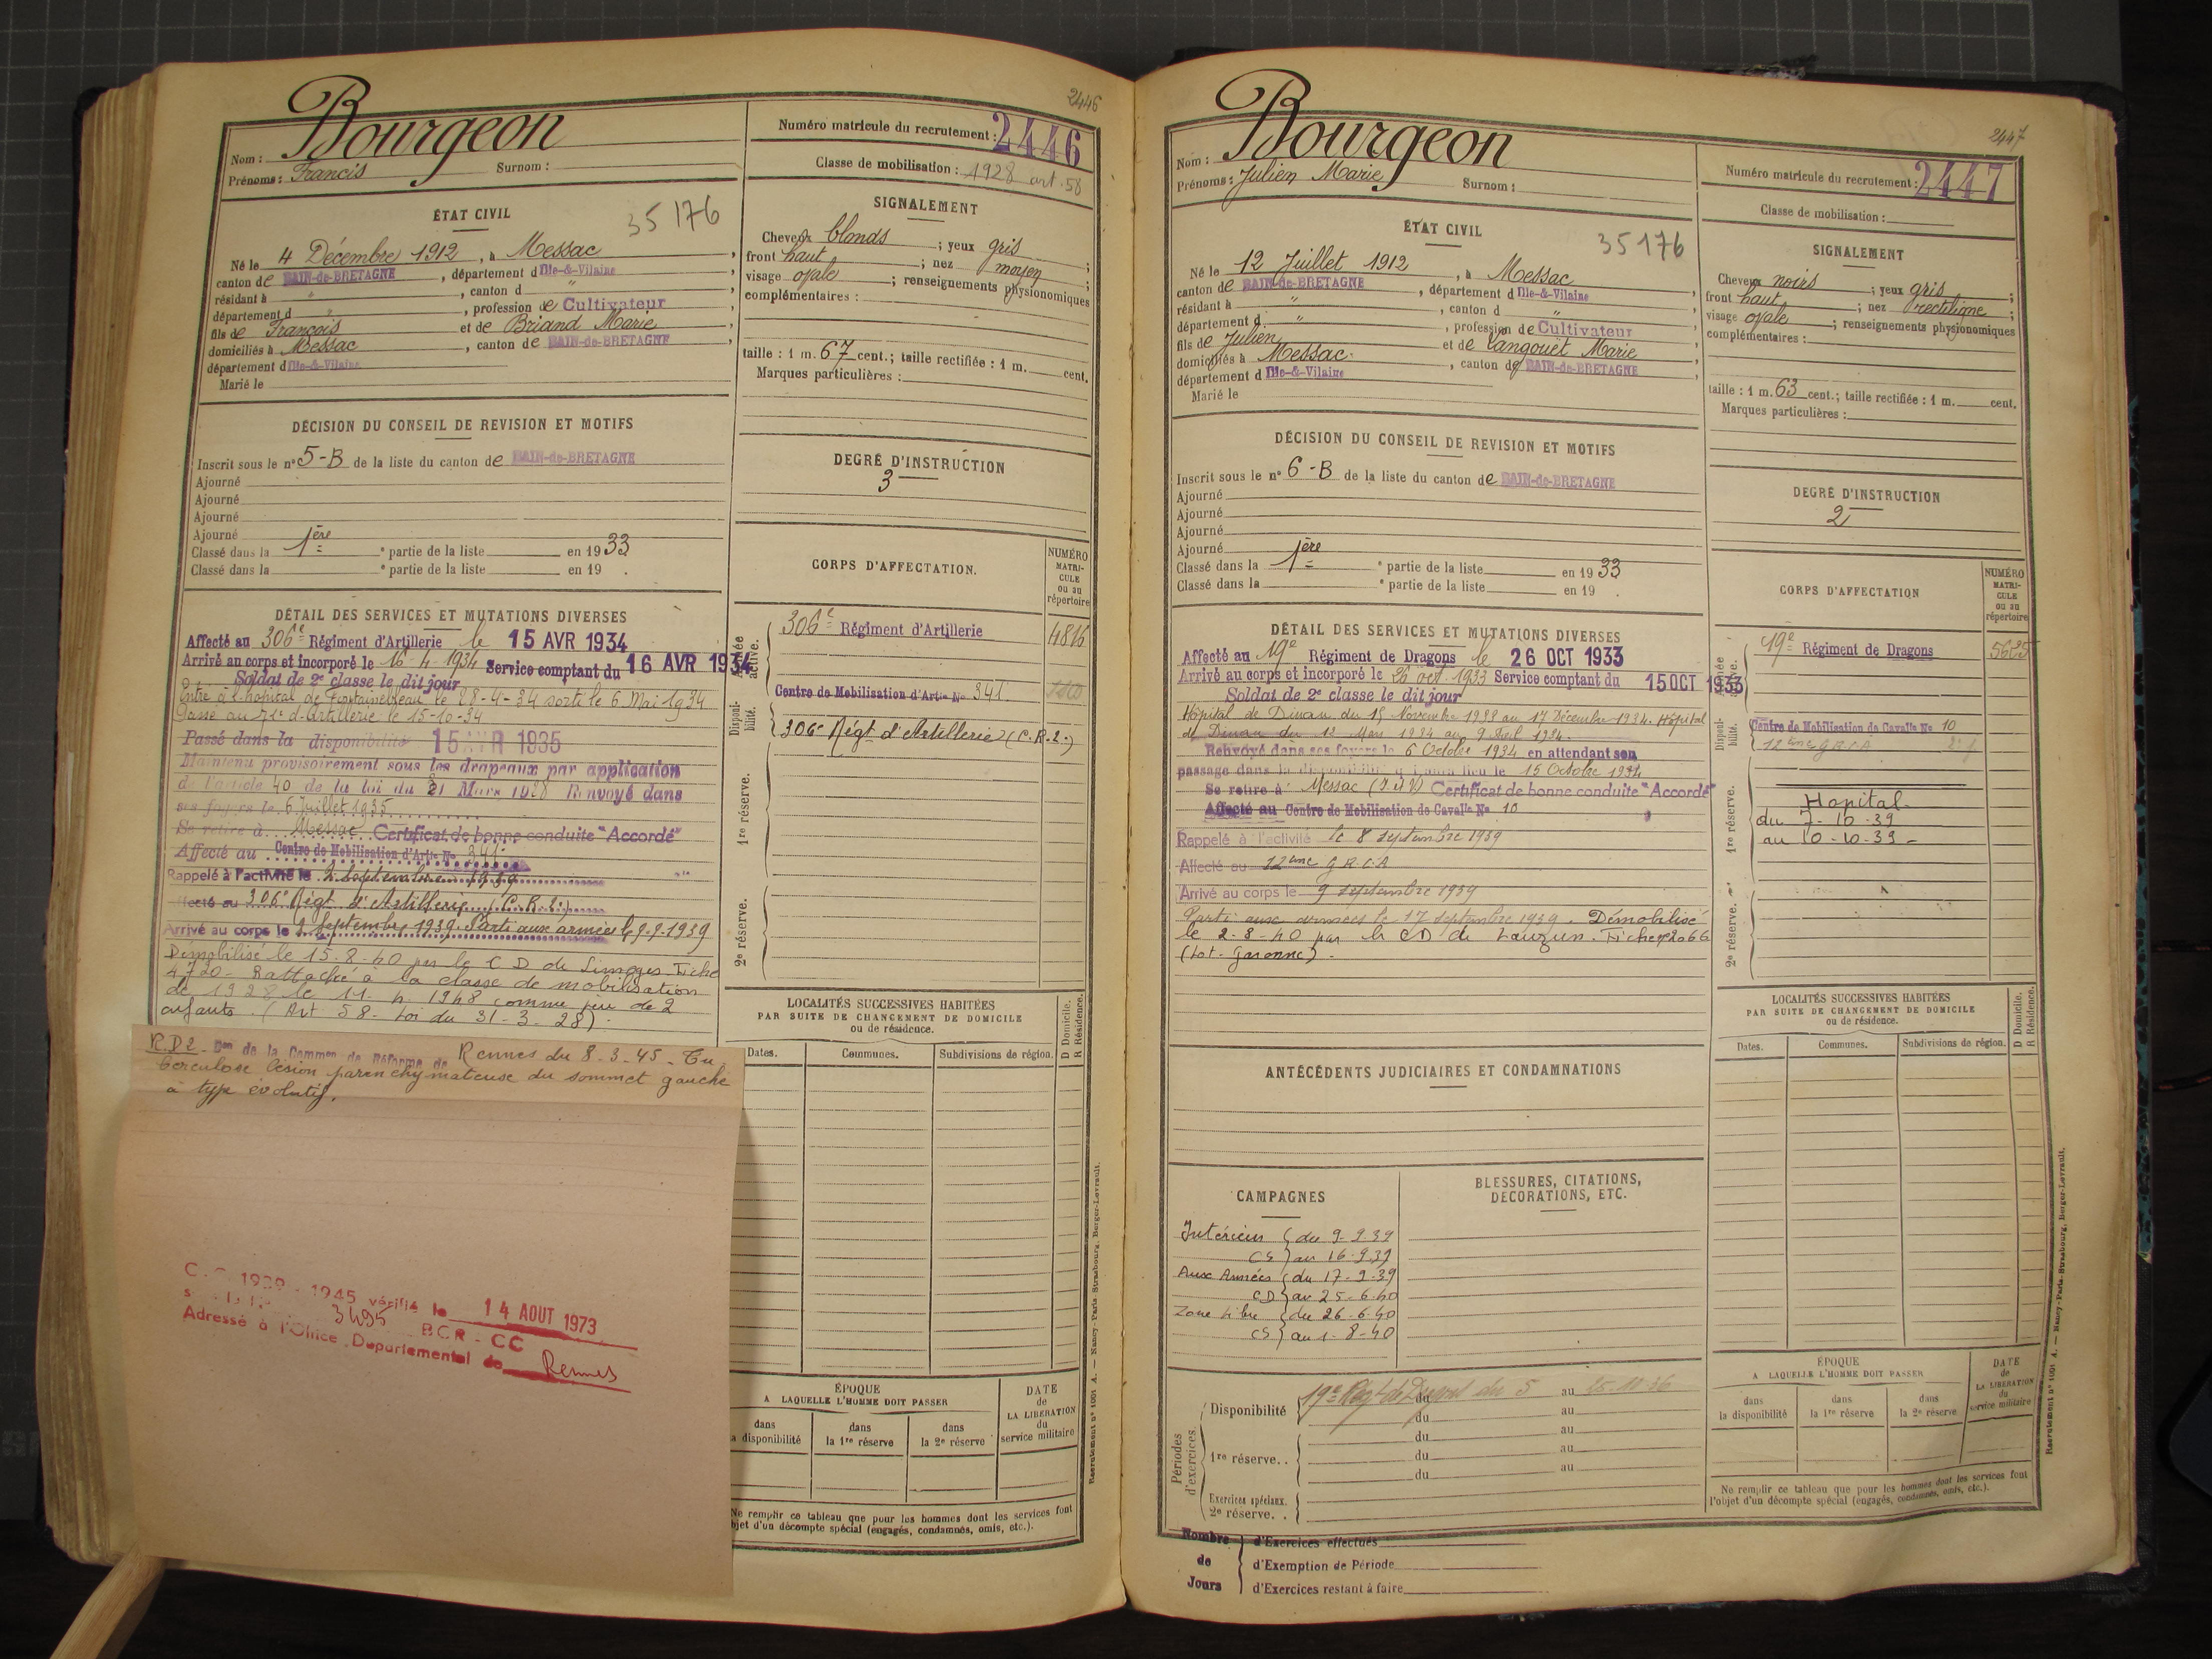 2446
Bourgeon
Nom :
Prénoms : Francis Surnom :
Numéro matricule du recrutement : 2446
Classe de mobilisation : 1928 art. 58
ÉTAT CIVIL
35176
Né le 4 Décembre 1912, à Messac,
canton de BAIN-de-BRETAGNE, département d Ille-&-Vilaine
résidant à " , canton d " ,
département d " , profession de Cultivateur
fils de François et de Briand Marie,
domiciliés à Messac, canton de BAIN-de-BRETAGNE,
département d Ille-&-Vilaine
Marié le
SIGNALEMENT
Cheveux blonds ; yeux gris ;
front haut ; nez moyen ;
visage ovale ; renseignements physionomiques
complémentaires :
taille : 1 m. 67 cent. ; taille rectifiée : 1 m. cent.
Marques particulières :
DÉCISION DU CONSEIL DE REVISION ET MOTIFS
Inscrit sous le n° 5-B de la liste du canton de BAIN-de-BRETAGNE
Ajourné
Ajourné
Ajourné
Ajourné
Classé dans la 1ère e partie de la liste en 1933
Classé dans la e partie de la liste en 19 .
DEGRÉ D'INSTRUCTION
3
CORPS D'AFFECTATION.
NUMÉRO
MATRI-
CULE
ou au
répertoire
Armée active.
306e Régiment d'Artillerie 4816
Centre de Mobilisation d'Artie No 341
Disponi-
bilité.
306e Régt d'Artillerie (C.R.2.)
1re réserve.
2e réserve.
DÉTAIL DES SERVICES ET MUTATIONS DIVERSES
Affecté au 306e Régiment d'Artillerie le 15 AVR 1934
Arrivé au corps et incorporé le 16-4-1934 Service comptant du 16 AVR 1934
Soldat de 2e classe le dit jour
Entré à l'hopital de Fontainebleau le 28-4-34 sorti le 6 Mai 1934
Passé au 71e d'Artillerie le 15-10-34
Passé dans la disponibilité 15 AVR 1935
Maintenu provisoirement sous les drapeaux par application
de l'article 40 de la loi du 31 Mars 1928 Renvoyé dans
ses foyers le 6 Juillet 1935
Se retire à Messac Certificat de bonne conduite "Accordé"
Affecté au Centre de Mobilisation d'Artie No 341
Rappelé à l'activité le 2 Septembre 1939
Affecté au 306e Régt d'Artillerie (C.R.2.)
Arrivé au corps le 2 Septembre 1939. Parti aux armées le 9.9.1939
Démobilisé le 15-8-40 par le C D de Limoges Fiche
4720 - Rattaché à la classe de mobilisation
de 1928 le 11. 4. 1948 comme père de 2
enfants. (Art 58- Loi du 31-3-28).
R.D2. Don de la Common de Réforme de Rennes du 8-3-45 - Tu
berculose lésion parenchymateuse du sommet gauche
à type évolutif.
1939 - 1945 vérifié le 14 AOUT 1973
3495 BCR - CC
Adressé à l'Office Départemental de Rennes
LOCALITÉS SUCCESSIVES HABITÉES
PAR SUITE DE CHANGEMENT DE DOMICILE
ou de résidence.
D Domicile.
R Résidence.
Dates. Communes. Subdivisions de région.
ÉPOQUE
A LAQUELLE L'HOMME DOIT PASSER
dans
la disponibilité
dans
la 1re réserve
dans
la 2e réserve
DATE
de
LA LIBÉRATION
du
service militaire
Ne remplir ce tableau que pour les hommes dont les services font
objet d'un décompte spécial (engagés, condamnés, omis, etc.).
Recrutement n° 1001 A. — Nancy-Paris-Strasbourg, Berger-Levrault.
2447
Bourgeon
Nom :
Prénoms : Julien Marie Surnom :
Numéro matricule du recrutement : 2447
Classe de mobilisation :
ÉTAT CIVIL
35176
Né le 12 Juillet 1912, à Messac
canton de BAIN-de-BRETAGNE, département d Ille-&-Vilaine
résidant à " , canton d " ,
département d " , profession de Cultivateur
fils de Julien et de Langouët Marie
domiciliés à Messac, canton de BAIN-de-BRETAGNE
département d Ille-&-Vilaine
Marié le
SIGNALEMENT
Cheveux noirs ; yeux gris ;
front haut ; nez rectiligne ;
visage ovale ; renseignements physionomiques
complémentaires :
taille : 1 m. 63 cent. ; taille rectifiée : 1 m. cent.
Marques particulières :
DÉCISION DU CONSEIL DE REVISION ET MOTIFS
Inscrit sous le n° 6-B de la liste du canton de BAIN-de-BRETAGNE
Ajourné
Ajourné
Ajourné
Ajourné
Classé dans la 1ère e partie de la liste en 1933
Classé dans la e partie de la liste en 19 .
DEGRÉ D'INSTRUCTION
2
CORPS D'AFFECTATION
NUMÉRO
MATRI-
CULE
ou au
répertoire
19e Régiment de Dragons 5625
Disponi-
bilité.
Centre de Mobilisation de Cavalie No 10
12ème G.R.C.A
1re réserve.
Hopital
du 7-10-39
au 10-10-39-
2e réserve.
DÉTAIL DES SERVICES ET MUTATIONS DIVERSES
Affecté au 19e Régiment de Dragons le 26 OCT 1933
Arrivé au corps et incorporé le 26 oct. 1933 Service comptant du 15 OCT 1933
Soldat de 2e classe le dit jour
Hôpital de Dinan du 15 Novembre 1933 au 17 Décembre 1934. Hôpital
de Dinan du 12 Mars 1934 au 9 Avril 1934.
Renvoyé dans ses foyers le 6 Octobre 1934 en attendant son
passage dans la disponibilité qui aura lieu le 15 Octobre 1934
Se retire à Messac (I.&V) Certificat de bonne conduite "Accordé"
Affecté au Centre de Mobilisation de Cavalie No 10
Rappelé à l'activité le 8 septembre 1939
Affecté au 12ème G R C A
Arrivé au corps le 9 septembre 1939
Parti aux armées le 17 septembre 1939. Démobilisé
le 2-8-40 par le CD de Lauzun. Fiche n° 2066
(Lot. Garonne).
ANTÉCÉDENTS JUDICIAIRES ET CONDAMNATIONS
CAMPAGNES
Intérieur du 9-9-39
CS au 16-9-39
Aux Armées du 17-9-39
CD au 25-6-40
Zone Libre du 26-6-40
CS au 1-8-40
BLESSURES, CITATIONS,
DÉCORATIONS, ETC.
Périodes
d'exercices.
Disponibilité 19e Régt de Dragons du 5 au 25-11-36
du au
1re réserve. . du au
du au
du au
Exercices spéciaux.
2e réserve. .
Nombre
de
Jours
d'Exercices effectués
d'Exemption de Période
d'Exercices restant à faire
LOCALITÉS SUCCESSIVES HABITÉES
PAR SUITE DE CHANGEMENT DE DOMICILE
ou de résidence.
D Domicile.
R Résidence.
Dates. Communes. Subdivisions de région.
ÉPOQUE
A LAQUELLE L'HOMME DOIT PASSER
dans
la disponibilité
dans
la 1re réserve
dans
la 2e réserve
DATE
de
LA LIBÉRATION
du
service militaire
Ne remplir ce tableau que pour les hommes dont les services font
l'objet d'un décompte spécial (engagés, condamnés, omis, etc.).
Recrutement n° 1001 A. — Nancy-Paris-Strasbourg, Berger-Levrault.